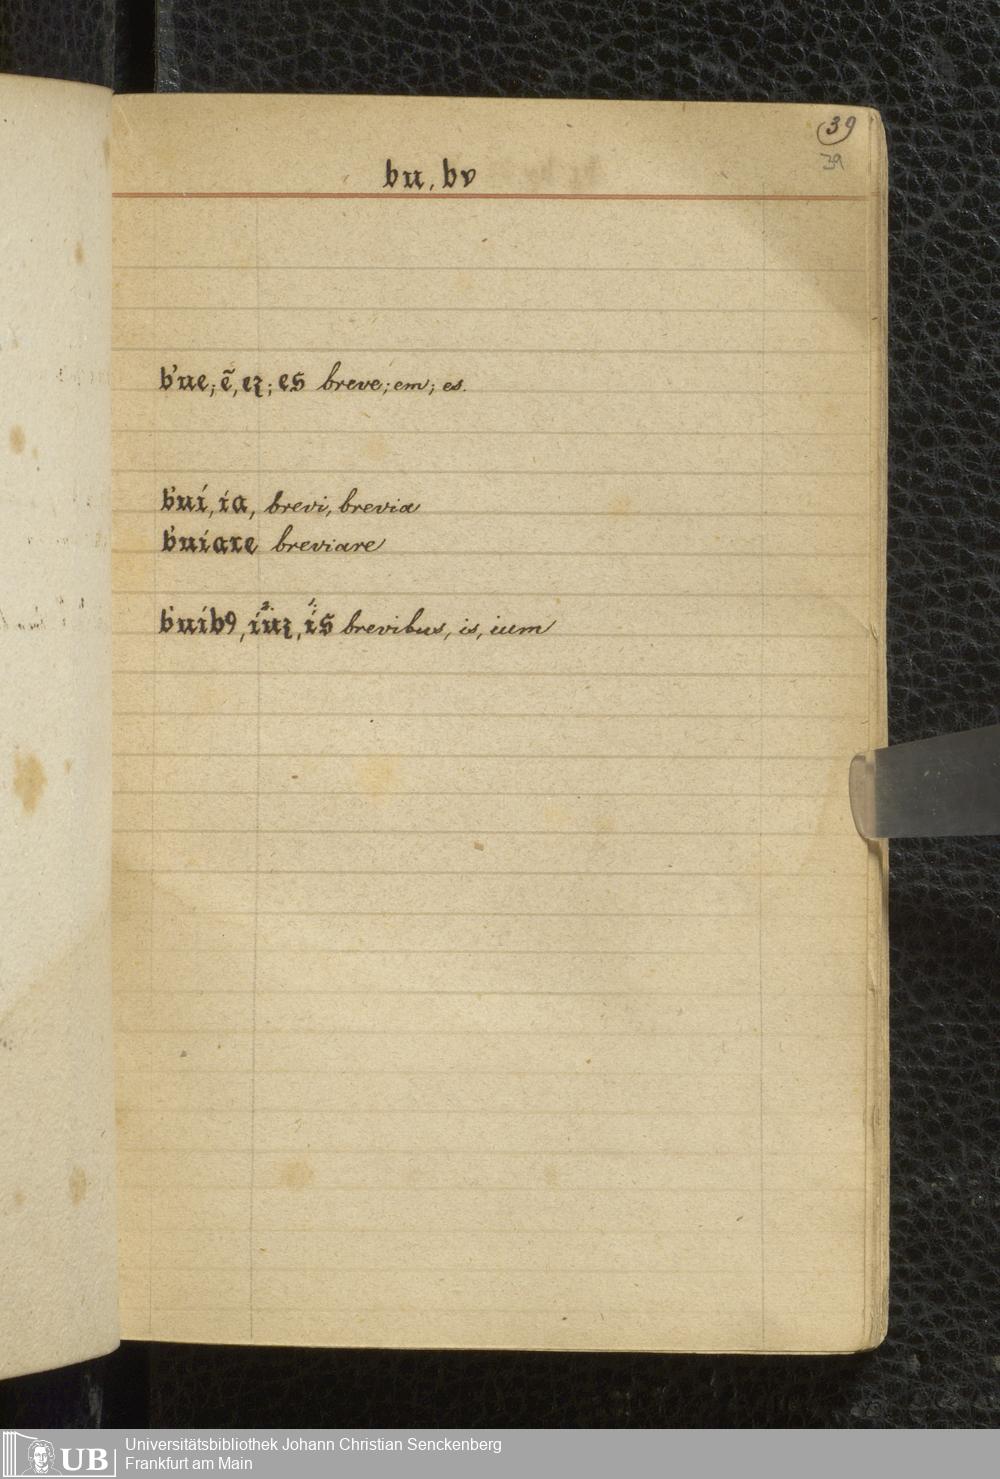 39
39
bu, bv
b'ue; ē, eʒ; es breve; em; es.
b'uí, ía, brevi, brevia
b'uíare breviare
b'uíbꝯ, íu̅ʒ, ís brevibus, is, ium
UB Universitätsbibliothek Johann Christian Senckenberg
Frankfurt am Main